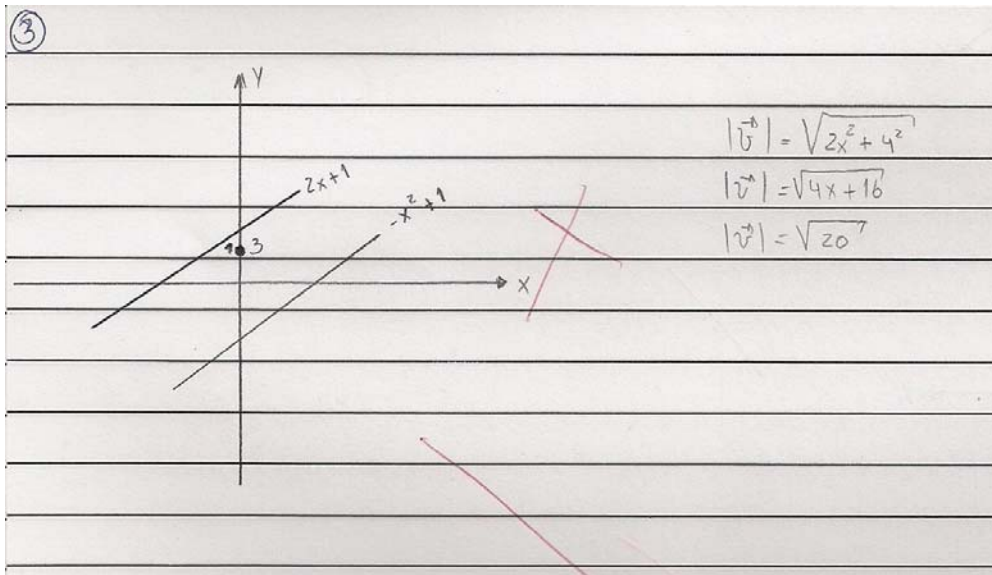 3
Y
2x+1
-x²+1
1 3
X
|v⃗| = √2x²+4²
|v⃗| = √4x+16
|v⃗| = √20